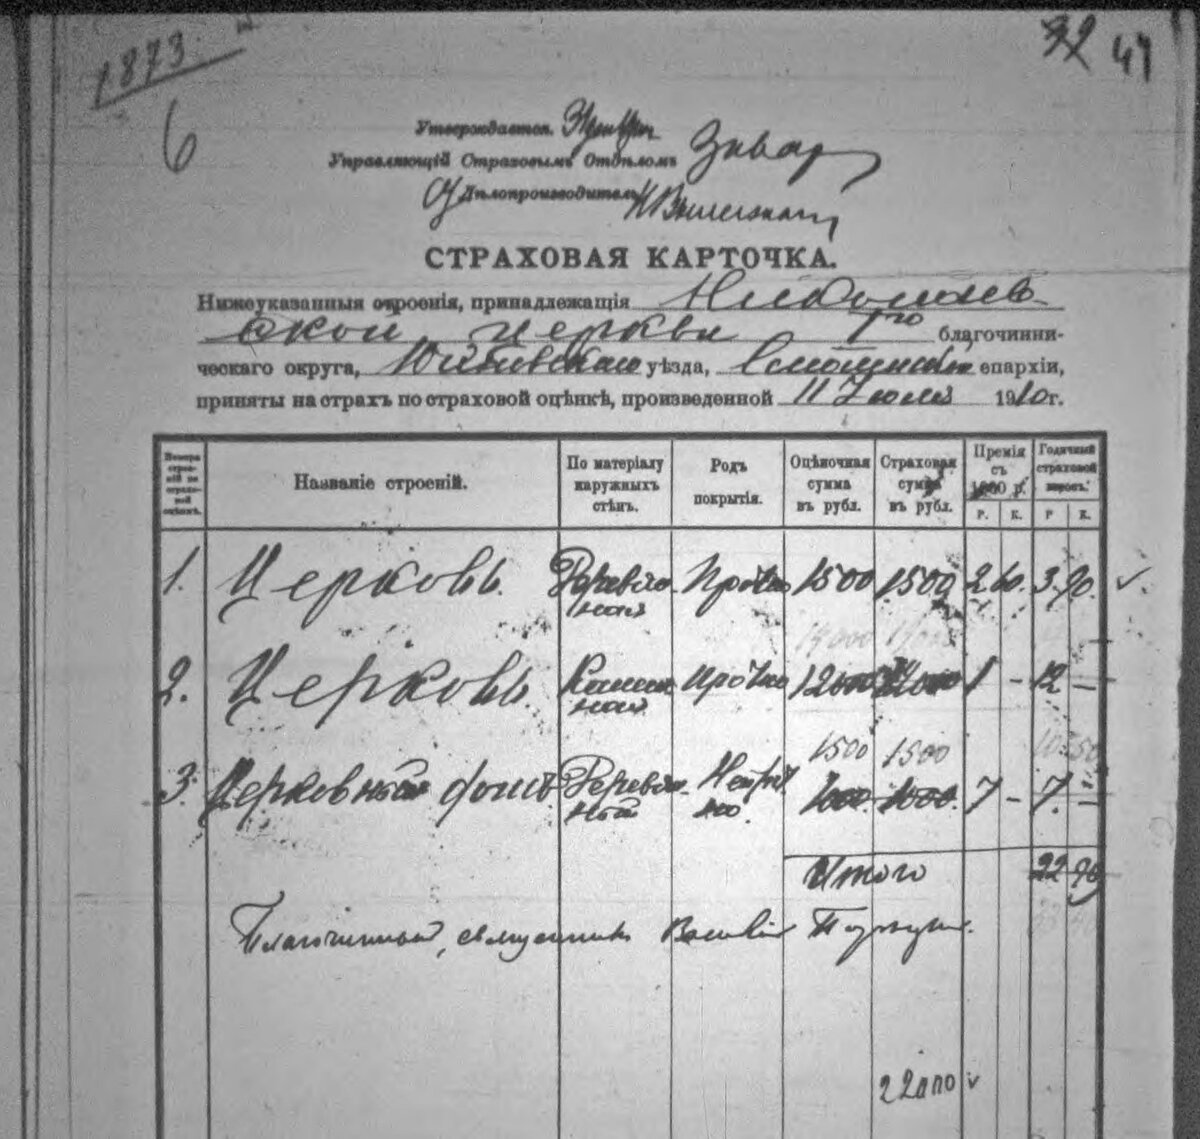 1873.
32 47
6
Утверждается.
Управляющій Страховымъ Отдѣломъ
Дѣлопроизводитель
СТРАХОВАЯ КАРТОЧКА.
Нижеуказанныя строенія, принадлежащія Николаев-
ской церкви 1го благочинни-
ческаго округа, уѣзда, епархіи,
приняты на страхъ по страховой оцѣнкѣ, произведенной 11 Іюля 1910 г.
Номера строеній по страховой оцѣнкѣ. Названіе строеній. По матеріалу наружныхъ стѣнъ. Родъ покрытія. Оцѣночная сумма въ рубл. Страховая сумма въ рубл. Премія съ 1000 р. Годичный страховой взносъ.
Р. К. Р К.
1. Церковь. Деревян- Прочно 1500 1500 2 60. 3. 90.
ная
2. Церковь. Камен- прочно 12000 12000 1 - 12 -
ная
1500 1500
3. Церковный домъ. Деревян- Непроч- 1000. 1000. 7 - 7. -
ный но.
Итого 22 90
Благочинный, священникъ Василій
22000